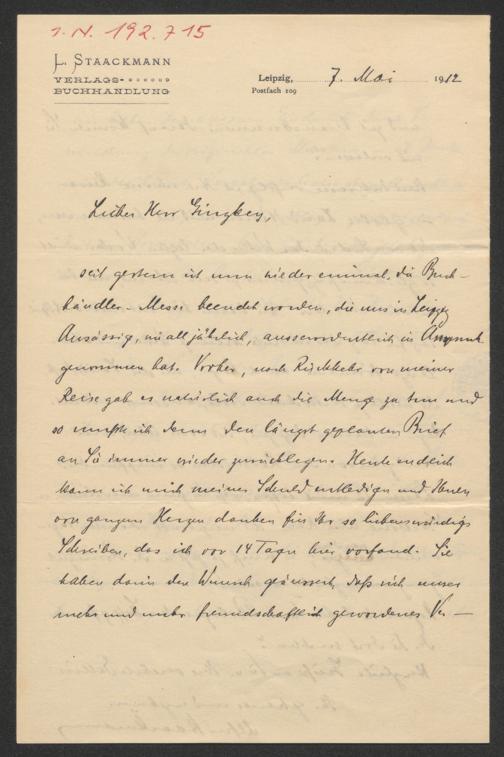 I. N. 192.715
L. STAACKMANN
VERLAGS-
BUCHHANDLUNG
Leipzig, 7. Mai 1912
Postfach 109
Lieber Herr Ginzkey,
seit gestern ist nun wieder einmal die Buch-
händler-Messe beendet worden, die uns in Leipzig
Ansässig, wie alljährlich, ausserordentlich in Anspruch
genommen hat. Vorher, nach Rückkehr von meiner
Reise gab es natürlich auch die Menge zu tun und
so musste ich denn den längst geplanten Brief
an Sie immer wieder zurücklegen. Heute endlich
kann ich mich meiner Schuld entledigen und Ihnen
von ganzem Herzen danken für Ihr so liebenswürdiges
Schreiben, das ich vor 14 Tagen hier vorfand. Sie
haben darin den Wunsch geäussert, daß sich unser
mehr und mehr freundschaftlich gewordenes Ver-